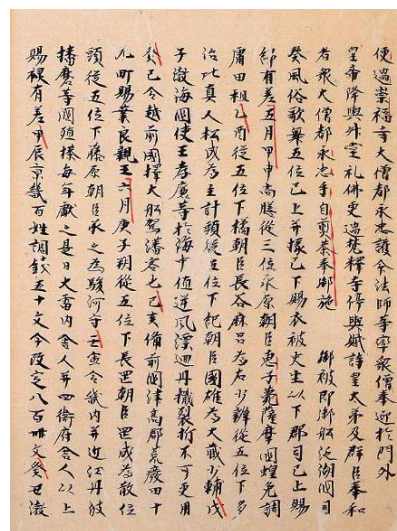 便過崇福寺大僧都永忠護命法師等率衆僧奉迎於門外
皇帝降輿升堂礼佛更過梵釋寺停輿賦詩皇太弟及群臣奉和
者衆大僧都永忠手自煎茶奉御施 御被即御船泛湖國司
奏風俗歌舞五位已上并掾已下賜衣被史生以下郡司已上賜
綿有差五月甲申尚膳從三位永原朝臣恵子薨薩摩國蝗免調
庸田租乙酉從五位下橘朝臣長谷麻呂為右少辨從五位下多
治比真人松成為主計頭從五位下紀朝臣國雄為大藏少輔戊
子渤海國使王孝廉等於海中值逆風漂廻舟檝裂折不可更用
癸巳令越前國擇大船駕蕃客也己亥備前國津高郡荒廢田十
九町賜業良親王六月庚子朔從五位下長罡朝臣罡成為散位
頭從五位下藤原朝臣承之為駿河守壬寅令畿内并近江丹波
播磨等國殖茶每年獻之是日大内舍人并四衛府舍人以上
賜祿有差甲辰京畿百姓調錢五十文今改定八百卌文癸丑渤